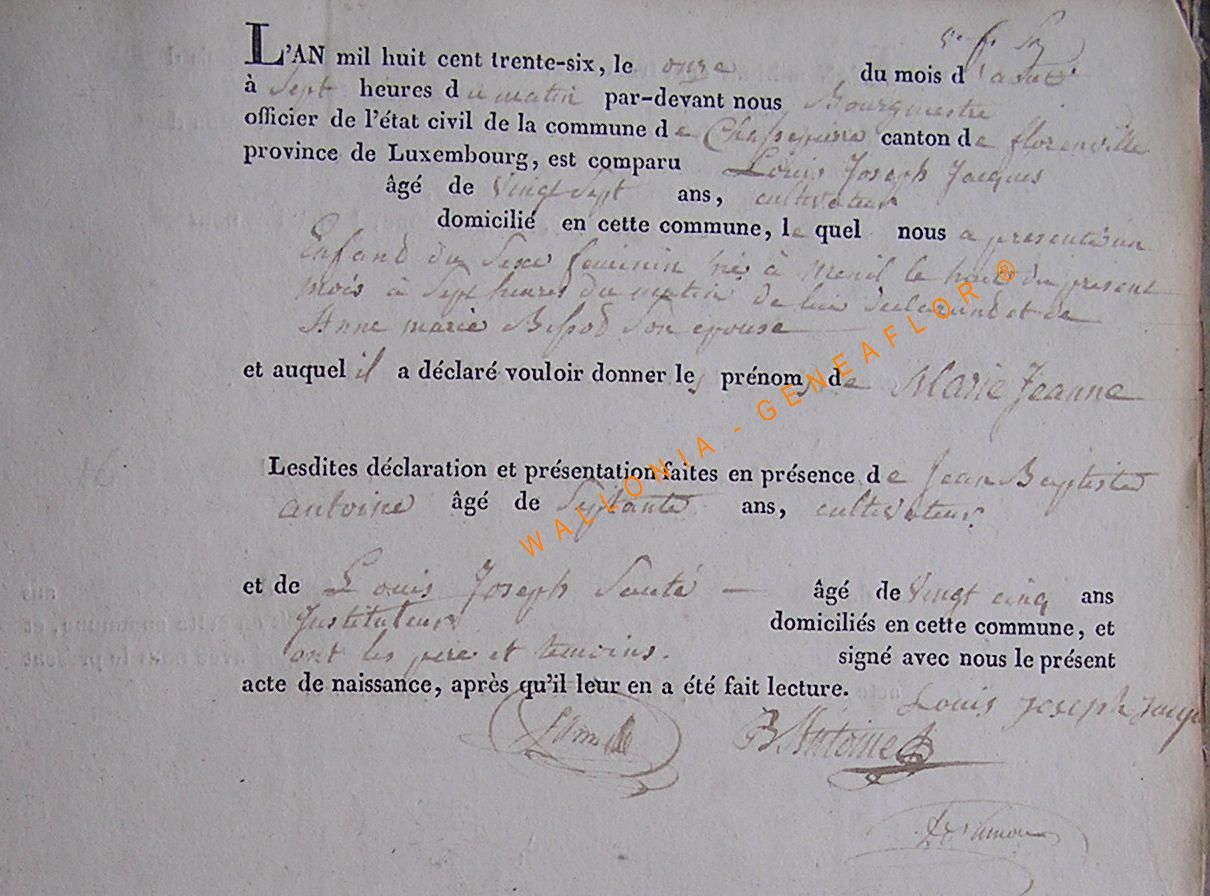 L'AN mil huit cent trente-six, le onze du mois d'aout
à Sept heures du matin par-devant nous Bourgmestre
officier de l'état civil de la commune de Chassepierre canton de florenville
province de Luxembourg, est comparu Louis Joseph Jacques
âgé de Vingt Sept ans, cultivateur
domicilié en cette commune, le quel nous a presenté un
Enfand du Sexe feminin né à menil le huit du present
mois à Sept heures du matin de lui declarand et de
Anne marie son epouse
et auquel il a déclaré vouloir donner les prénoms de Marie Jeanne
Lesdites déclaration et présentation faites en présence de Jean Baptiste
antoine âgé de Septante ans, cultivateur
et de Louis Joseph âgé de Vingt cinq ans
Instituteur domiciliés en cette commune, et
ont les pere et temoins. signé avec nous le présent
acte de naissance, après qu'il leur en a été fait lecture.
Louis Joseph Jacques
B. Antoine
WALLONIA - GENEAFLOR ®